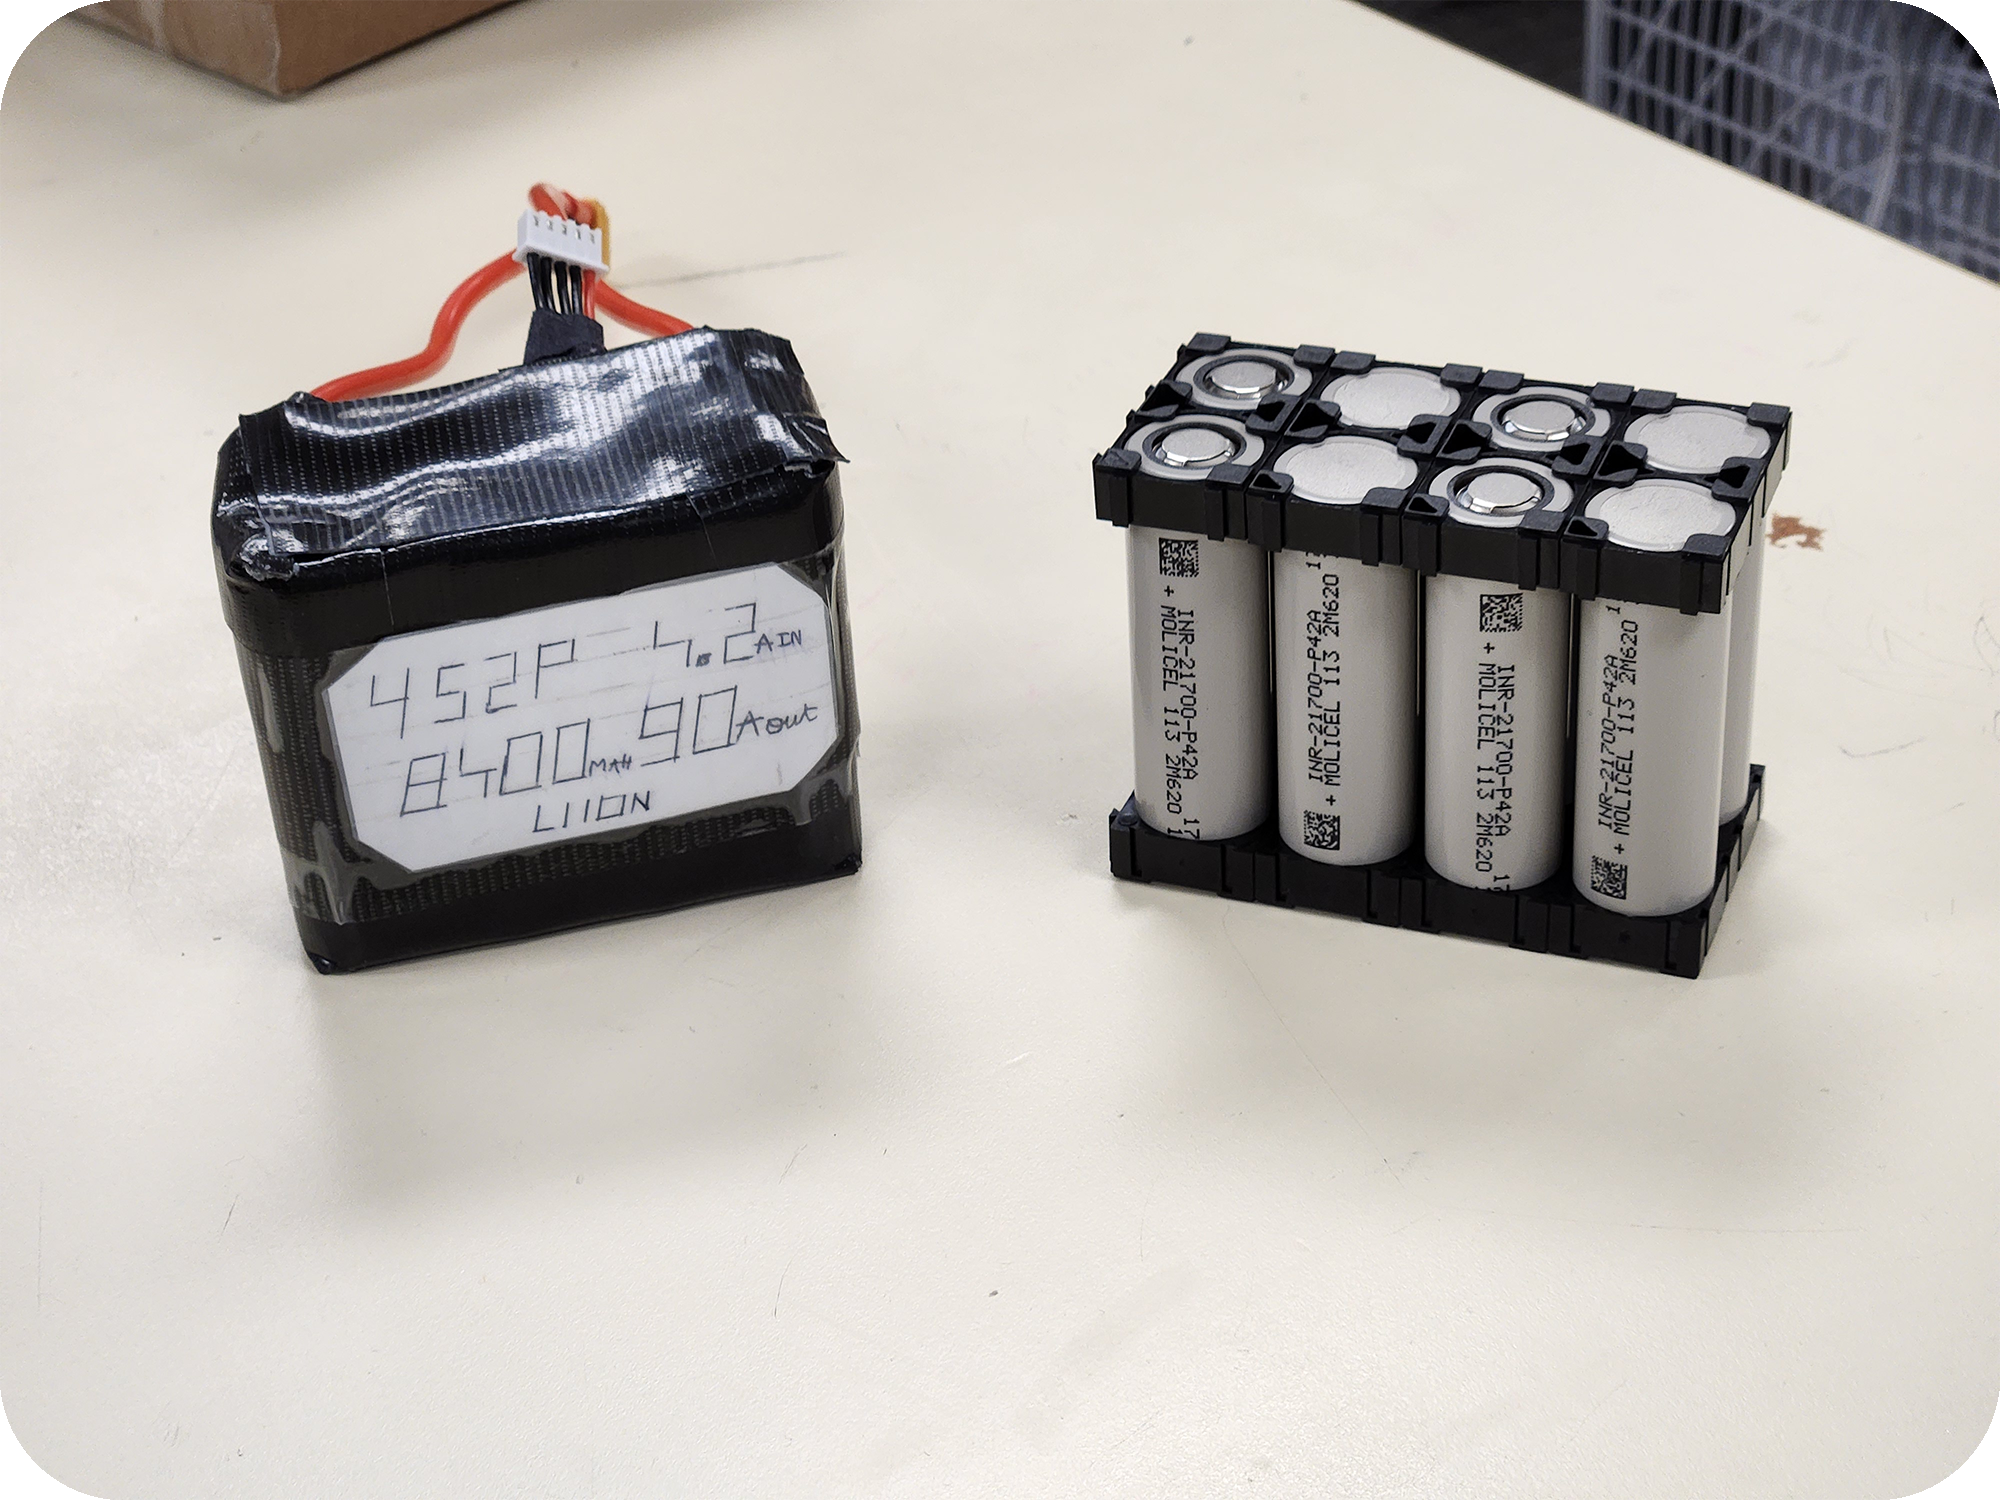 4S2P-4.2 A IN
8400 MAH 90 A out
LIION
INR-21700-P42A
+ MOLICEL 113 2M620 17
INR-21700-P42A 1
+ MOLICEL 113 2M620
INR-21700-P42A
+ MOLICEL 113 2M620 1
INR-21700-P42A 1
+ MOLICEL 113 2M620